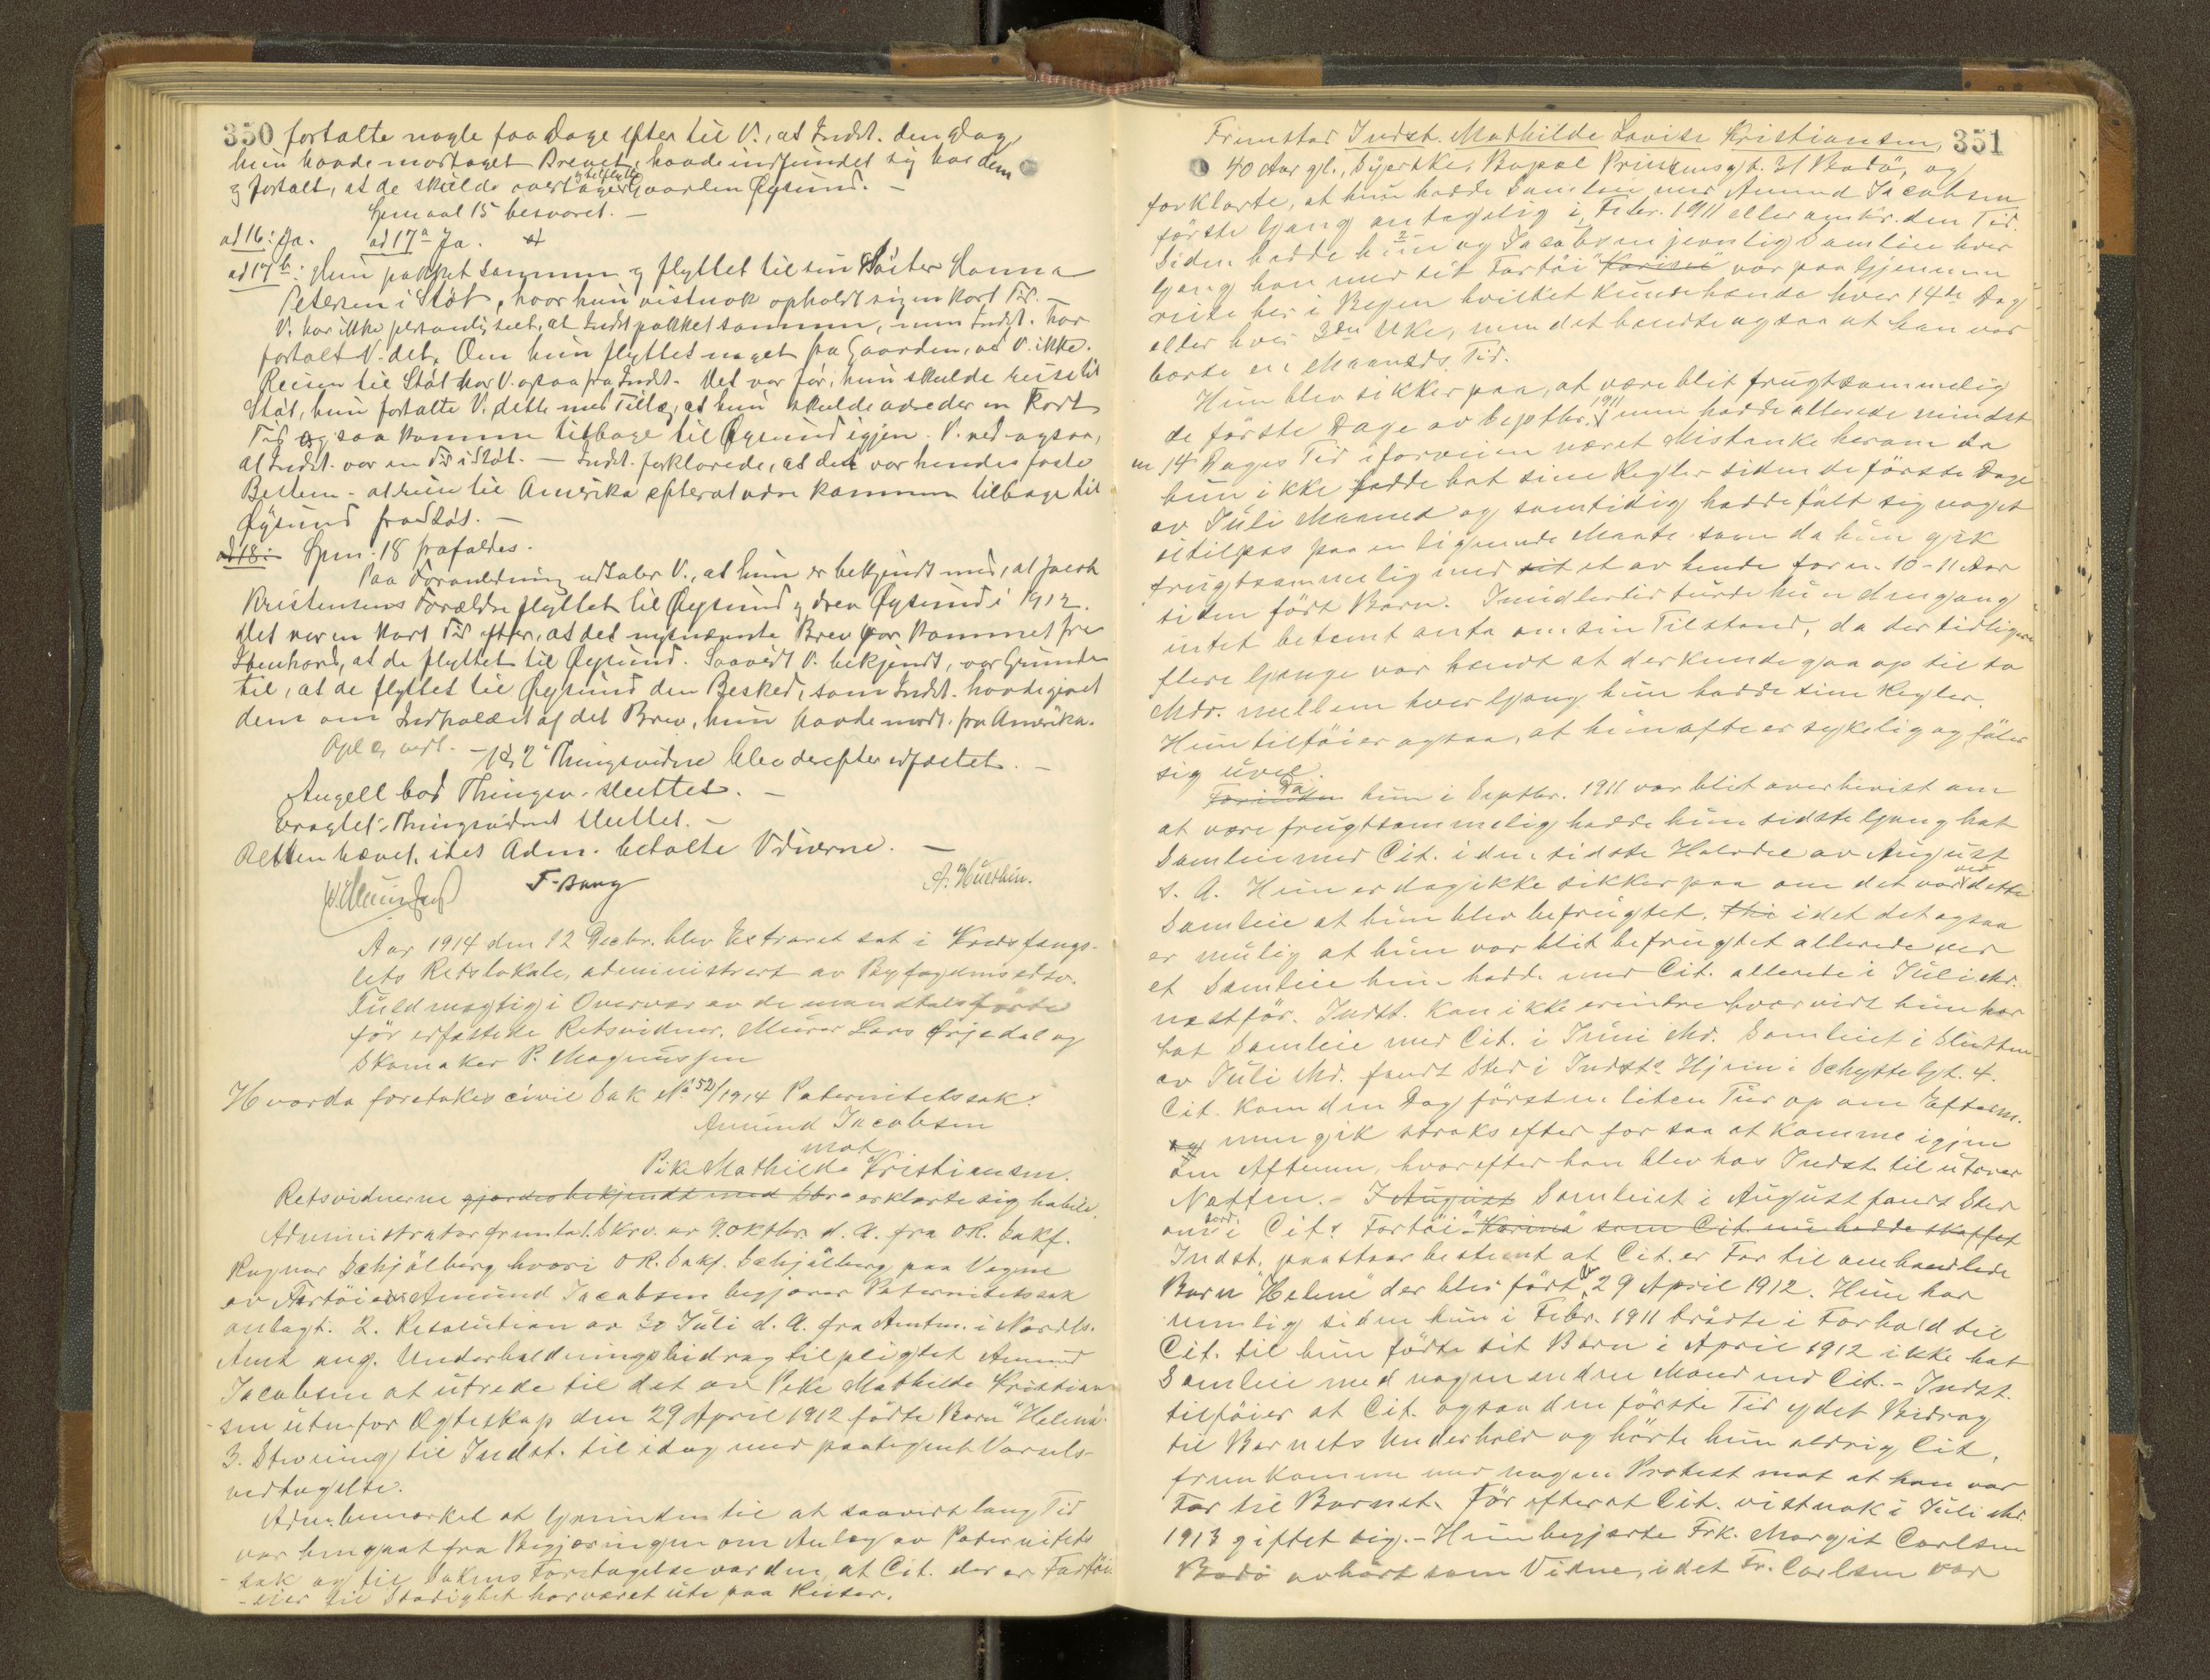 350 fortalte nogle faa Dage efter til V., at Indst. den Dag,
hun havde modtaget Brevet, havde indfundet sig hos dem
og fortalt, at de skulde overtage Gaarden Øysund. —
Spmaal 15 besvaret. —
ad 16: Ja. ad 17a Ja.
ad 17b: Hun pakket sammen og flyttet til sin Søster Hanna
Petersen i Støt, hvor hun vistnok opholdt sig en kort Tid. —
V. har ikke personlig seet, at Indst pakket sammen, men Indst. har
fortalt V. det. Om hun flyttet noget fra Gaarden, ved V. ikke.
Reisen til Støt har V. ogsaa fra Indst. Det var før, hun skulde reise til
Støt, hun fortalte V. dette med Tillæg, at hun skulde være der en kort
Tid og saa komme tilbage til Øysund igjen. V. ved ogsaa,
at Indst. var en Tid i Støt. — Indst. forklarede, at det var hendes faste
Bestem- at reise til Amerika efter at være kommen tilbage til
Øysund fra Støt. —
ad 18: Spm. 18 frafaldes.
Paa Foranledning udtaler V., at hun er bekjendt med, at Jacob
Kristensens Forældre flyttet til Øysund og drev Øysund i 1912.
Det var en kort Tid efter, at det nysnævnte Brev var kommet fra
at de flyttet til Øysund. Saavidt V. bekjendt, var Grunden
til, at de flyttet til Øysund den Besked, som Indst. havde givet
dem om Indholdet af det Brev, hun havde modt. fra Amerika.
Opl. og vedt. — 1ste og 2det Thingsvidne blev derefter edfæstet. —
Angell bad Thingsv. sluttet. —
Eragtet: Thingsvidnet sluttet. —
Retten hævet, idet Adm. betalte Vidnerne. —
F. Bang
Aar 1914 den 12 Decbr. blev Extraret sat i Kredsfængs-
lets Retslokale, administrert av Byfogdens edsv.
Fuldmægtig i Overvær av de mandtalsførte
før edfæstede Retsvidner, Murer Lars Ørjedal og
Skomaker P. Magnussen
Hvorda foretokes civil Sak No 52/1914 Paternitetssak:
Amund Jacobsen
mot
Pike Mathilde Kristiansen.
Retsvidnerne gjordes bekjendt med erklærte sig habile.
Administrator fremla 1. Skrv. av 9. Oktbr. d. A. fra OR. Sakf.
Ragnar Schjølberg hvori OR. Sakf. Schjølberg paa Vegne
av Fartøieier Amund Jacobsen begjærer Paternitetssak
anlagt. 2. Resolution av 30 Juli d. A. fra Amtm. i Nordls.
Amt ang. Underholdningsbidrag tilpligtet Amund
Jacobsen at utrede til det av Pike Mathilde Kristian-
sen utenfor Egteskap den 29 April 1912 fødte Barn "Helene".
3. Stevning til Indst. til idag med paategnet Varsels-
vedtagelse.
Adm. bemærket at Grunden til at saavidt lang Tid
var hengaat fra Begjæringen om Anlæg av Paternitets
sak og til Sakens Foretagelse var den, at Cit. der er Fartøi-
eier til Stadighet har været ute paa Reiser.
Fremstod Indst. Mathilde Lovise Kristiansen, 351
40 Aar gl., Syerske, Bopæl Prinsensgt. 31 Bodø, og
forklarte, at hun hadde Samleie med Amund Jacobsen
første Gang antagelig i Febr. 1911 eller omkr. den Tid.
Siden hadde hun og Jacobsen jevnlig Samleie hver
Gang han med sit Fartøi "Karina" var paa Gjennem
reise her i Byen hvilket kunde hænde hver 14de Dag
eller hver 3dje Uke, men det hændte ogsaa at han var
borte en Maaneds Tid.
Hun blev sikker paa, at være blit frugtsommelig
de første Dage av Septbr. 1911 men hadde allerede mindst
en 14 Dages Tid iforveien næret Mistanke herom da
hun ikke hadde hat sine Regler siden de første Dage
av Juli Maaned og samtidig hadde følt sig noget
utilpas paa en lignende Maate som da hun gik
frugtsommelig med sit et av hende for en 10-11 Aar
siden født Barn. Imidlertid turde hun dengang
intet bestemt anta om sin Tilstand, da der tidligere
flere Gange var hændt at der kunde gaa op til to
Mdr. mellem hver Gang hun hadde sine Regler.
Hun tilføier ogsaa, at hun ofte er sykelig og føler
sig uvel.
Da hun i Septbr. 1911 var blit overbevist om
at være frugtsommelig hadde hun sidste Gang hat
Samleie med Cit. i den sidste Halvdel av August
s. A. Hun er dog ikke sikker paa om det var ved dette
Samleie at hun blev befrugtet, thi idet det ogsaa
er mulig at hun var blit befrugtet allerede ved
et Samleie hun hadde med Cit. allerede i Juli Md.
næstfør. Indst. kan ikke erindre hvorvidt hun har
hat Samleie med Cit. i Juni Md. Samleiet i Slutten
av Juli Md. fandt Sted i Indsts Hjem i Schyttesgt. 4.
Cit. kom den Dag først en liten Tur op om Efterm.
og men gik straks efter for saa at komme igjen
om Aftenen, hvorefter han blev hos Indst. til utover
Natten. — I August Samleiet i August fandt Sted
ombord i Cits Fartøi "Karina" som Cit. nu hadde skaffet
Indst. paastaar bestemt at Cit. er Far til omhandlede
Barn "Helene" der blev født 29 April 1912. Hun har
nemlig siden hun i Febr. 1911 traadte i Forhold til
Cit. til hun fødte sit Barn i April 1912 ikke hat
Samleie med nogen anden Mand end Cit. — Indst.
tilføier at Cit. ogsaa den første Tid ydet Bidrag
til Barnets Underhold og hørte hun aldrig Cit.
fremkomme med nogen Protest mot at han var
Far til Barnet, før efterat Cit. vistnok i Juli Md.
1913 giftet sig. — Hun begjærte Frk. Margit Carlsen
Bodø avhørt som Vidne, idet Fr. Carlsen var